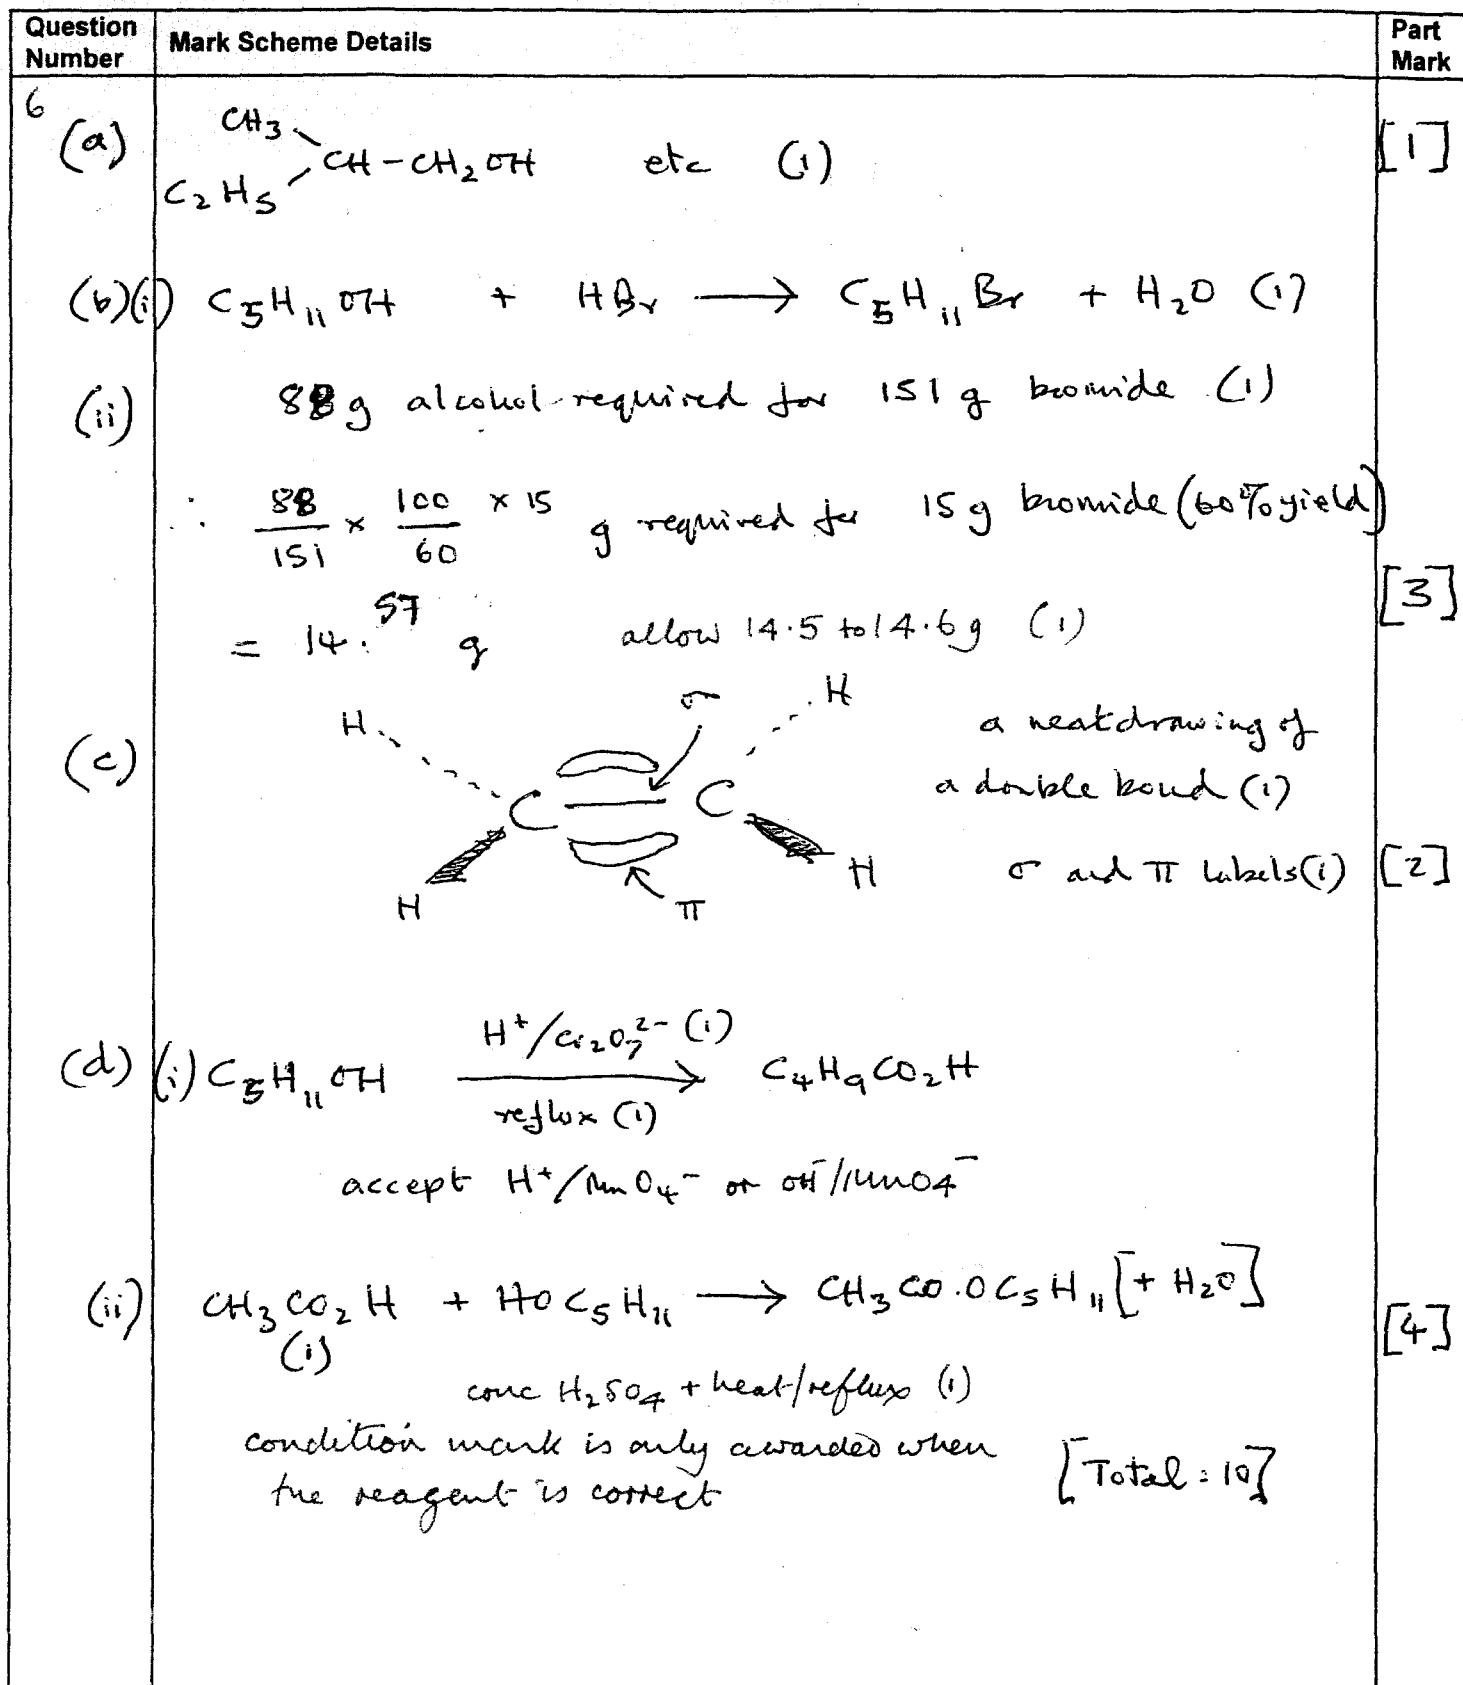 Question Number | Mark Scheme Details | Part Mark
6
(a) CH3 C2H5 CH-CH2OH etc (1) [1]
(b)(i) C5H11OH + HBr ⟶ C5H11Br + H2O (1)
(ii) 88 g alcohol required for 151 g bromide (1)
∴ 88/151 × 100/60 × 15 g required for 15 g bromide (60% yield)
= 14.57 g allow 14.5 to 14.6 g (1) [3]
H σ H
(c) C C
a neat drawing of
a double bond (1)
H π H
σ and π labels (1) [2]
(d) (i) C5H11OH H+/Cr2O7 2- (1) reflux (1) ⟶ C4H9CO2H
accept H+/MnO4- or OH-/MnO4-
(ii) CH3CO2H + HOC5H11 ⟶ CH3CO.OC5H11 [+ H2O]
(1) [4]
conc H2SO4 + heat/reflux (1)
condition mark is only awarded when
the reagent is correct [Total : 10]